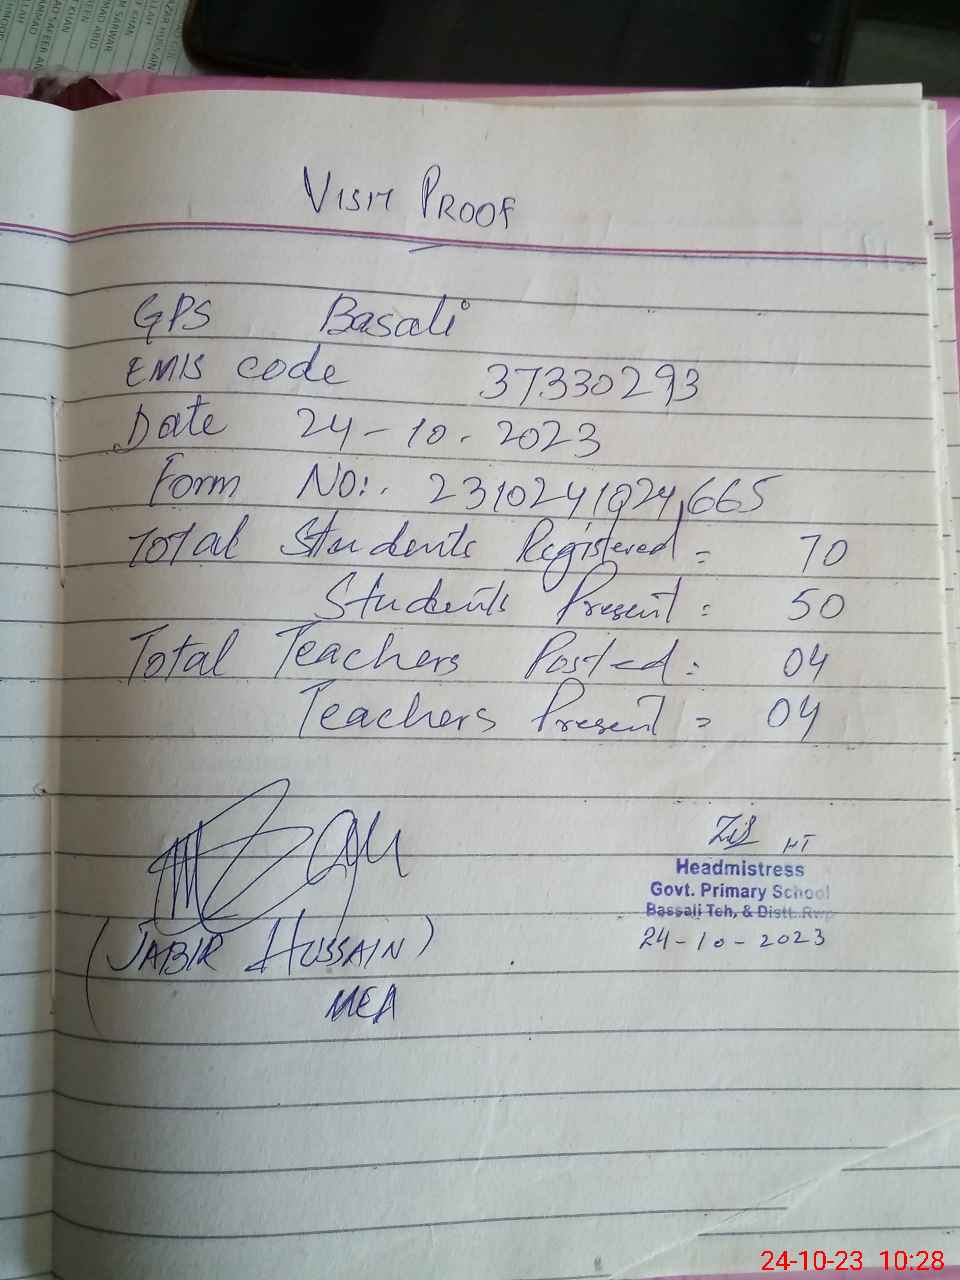 VISIT PROOF
GPS Basali
EMIS code 37330293
Date 24-10-2023
Form NO:. 2310241024665
Total Students Registered = 70
Students Present : 50
Total Teachers Posted : 04
Teachers Present = 04
(JABIR HUSSAIN)
MEA
HT
Headmistress
Govt. Primary School
Bassali Teh, & Distt. Rwp
24-10-2023
24-10-23 10:28